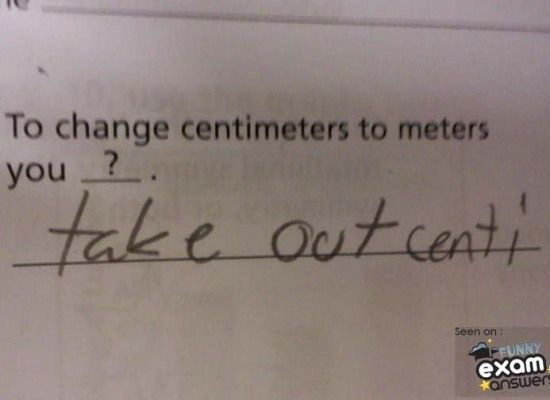 To change centimeters to meters
you ? .
take out centi
Seen on :
FUNNY
exam
answers